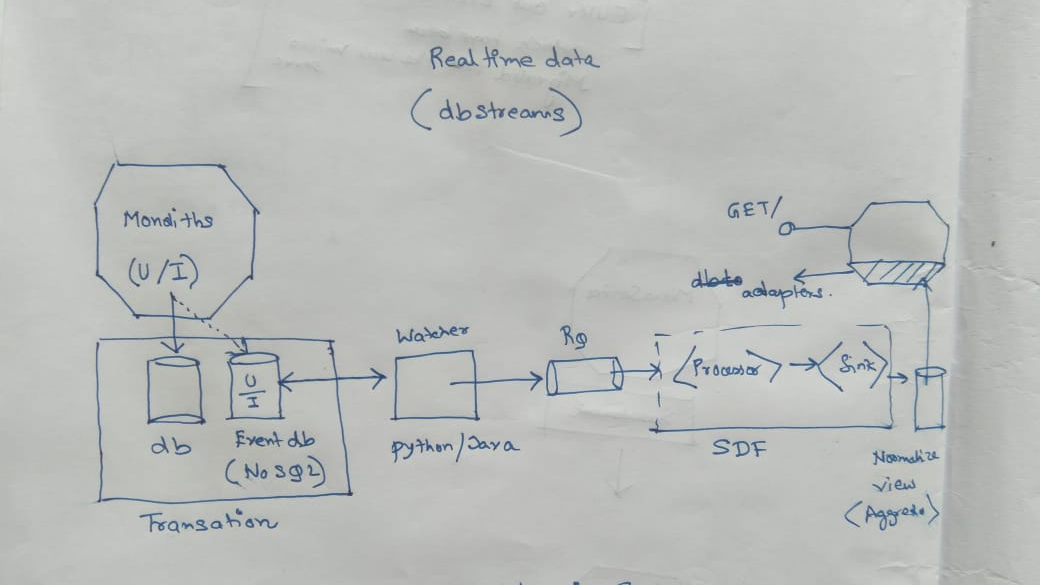 Real time data
(dbstreams)
Monoliths
(U/I)
GET/
adapters.
Watcher
RQ
<Processor>
<Sink>
U
I
db
Event db
(NoSQL)
python/Java
SDF
Normalize
view
Transation